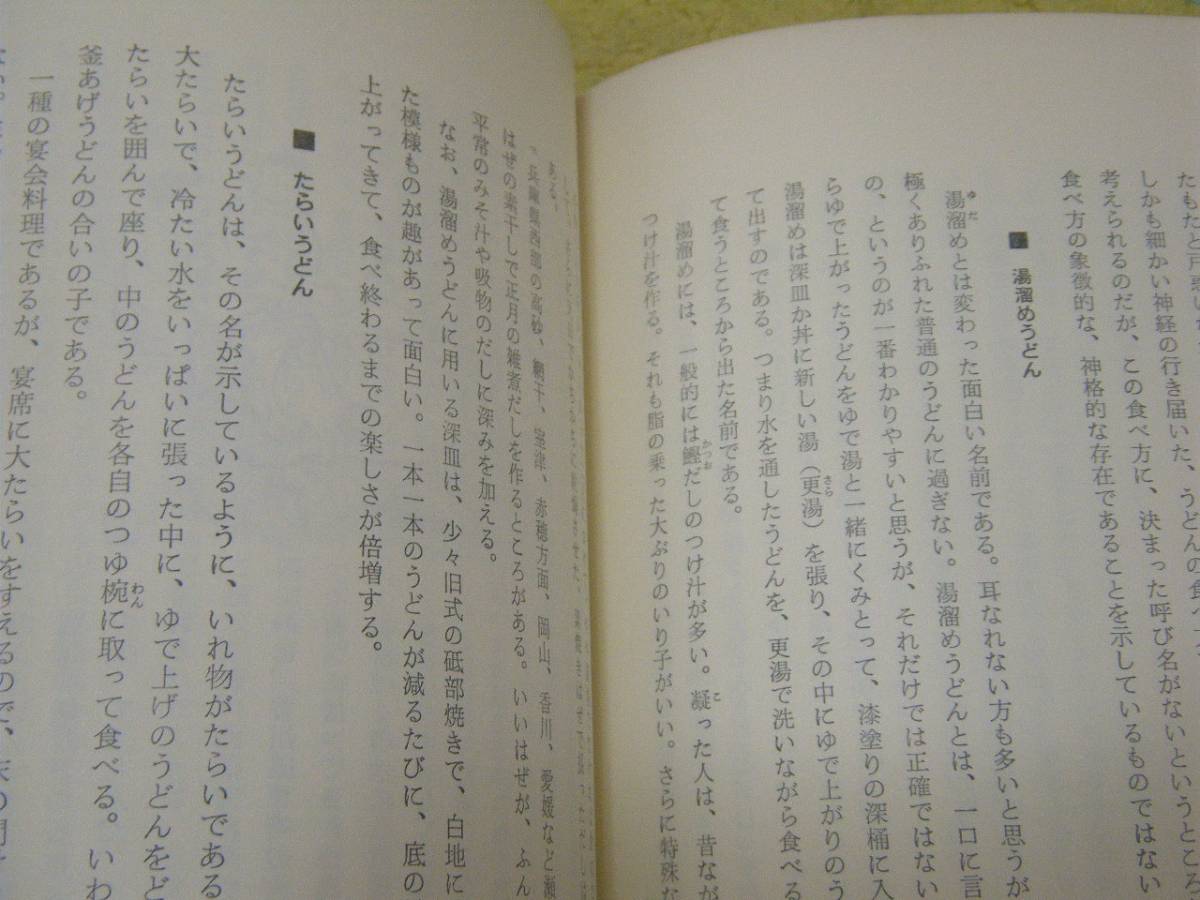 しかも細かい神経の行き届いた、うどんの食べ
考えられるのだが、この食べ方に、決まった呼び名がないというところ
食べ方の象徴的な、神格的な存在であることを示しているものではない
■ 湯溜めうどん
湯溜めとは変わった面白い名前である。耳なれない方も多いと思うが
極くありふれた普通のうどんに過ぎない。湯溜めうどんとは、一口に言
の、というのが一番わかりやすいと思うが、それだけでは正確ではない
らゆで上がったうどんをゆで湯と一緒にくみとって、漆塗りの深桶に入
湯溜めは深皿か丼に新しい湯（更湯）を張り、その中にゆで上がりのう
て出すのである。つまり水を通したうどんを、更湯で洗いながら食べる
て食うところから出た名前である。
湯溜めには、一般的には鰹だしのつけ汁が多い。凝った人は、昔なが
つけ汁を作る。それも脂の乗った大ぶりのいり子がいい。さらに特殊な
ある。
兵庫県西部の高砂、網干、室津、赤穂方面、岡山、香川、愛媛など瀬
はぜの素干しで正月の雑煮だしを作るところがある。いいはぜが、ふん
平常のみそ汁や吸物のだしに深みを加える。
なお、湯溜めうどんに用いる深皿は、少々旧式の砥部焼きで、白地に
た模様ものが趣があって面白い。一本一本のうどんが減るたびに、底の
上がってきて、食べ終わるまでの楽しさが倍増する。
■ たらいうどん
たらいうどんは、その名が示しているように、いれ物がたらいである
大たらいで、冷たい水をいっぱいに張った中に、ゆで上げのうどんをど
たらいを囲んで座り、中のうどんを各自のつゆ椀に取って食べる。いわ
釜あげうどんの合いの子である。
一種の宴会料理であるが、宴席に大たらいをすえるので、